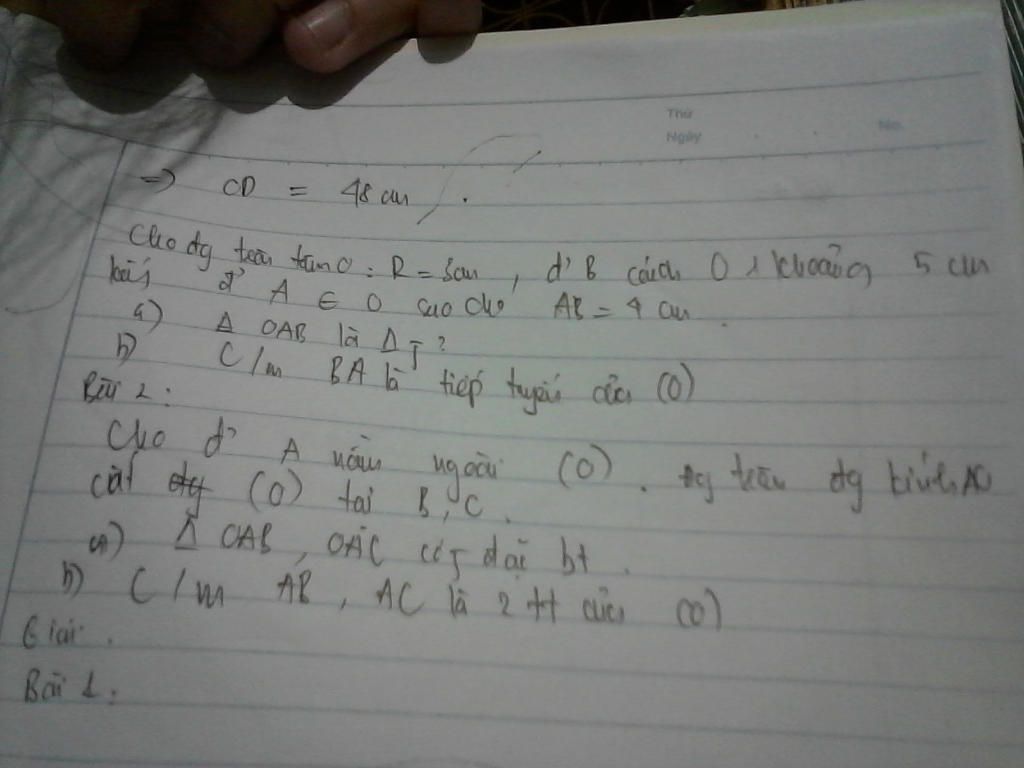 Thứ
Ngày No.
=> CD = 48 cm .
Cho đg tròn tâm O : R = 3cm , đ' B cách O 1 khoảng 5 cm
đ' A ∈ O sao cho AB = 4 cm .
a) Δ OAB là Δ ?
b) C/m BA là tiếp tuyến của (O)
Bài 2 :
Cho đ' A nằm ngoài (O) . đg tròn đg kính AO
cắt đg (O) tại B, C .
a) Δ OAB , OAC có đặc bt .
b) C/m AB , AC là 2 tt của (O)
Giải .
Bài 1 :